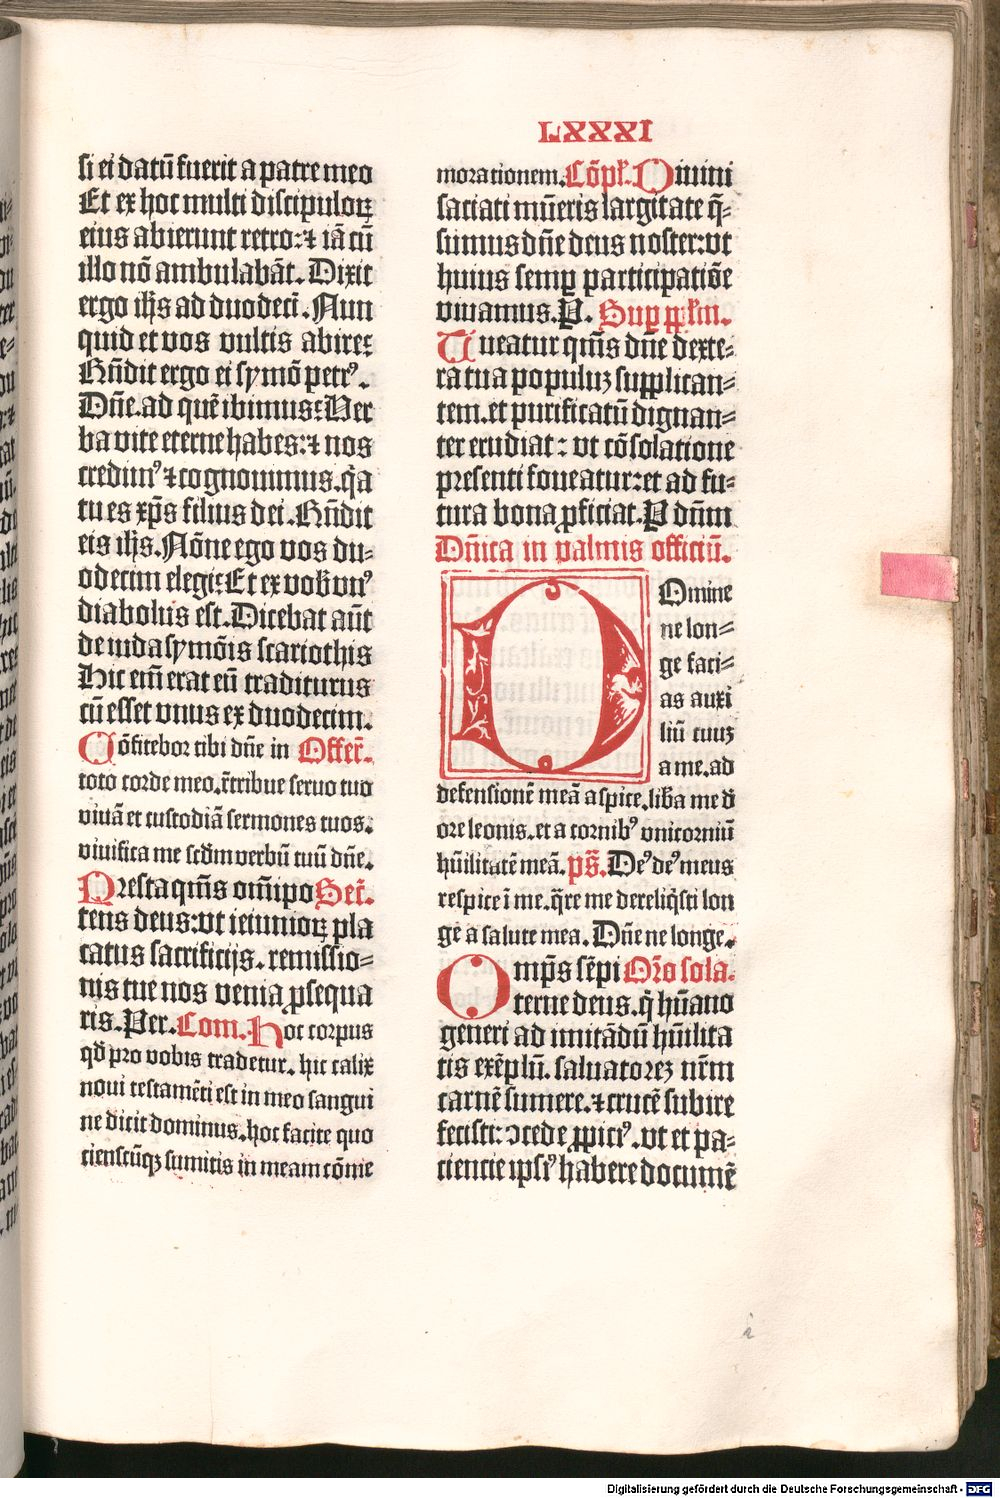 LXXXI
si ei datū fuerit a patre meo
Et ex hoc multi discipuloꝝ
eius abierunt retro: ⁊ iā cū
illo nō ambulabāt. Dixit
ergo ih̄s ad duodeci̅. Nun
quid et vos vultis abire:
Rn̄dit ergo ei symō petrꝰ.
Dn̄e. ad quē ibimus: Ver
ba vite eterne habes: ⁊ nos
credimꝰ ⁊ cognouimus. q̄a
tu es xp̄s filius dei. Rn̄dit
eis ih̄s. Nōne ego vos du⸗
odecim elegi: Et ex vob̄ vnꝰ
diabolus est. Dicebat aūt
de iuda symōis scariothis
Hic em̄ erat eū traditurus
cū esset vnus ex duodecim.
Cōfitebor tibi dn̄e in Offer̄.
toto corde meo. r̄tribue seruo tuo
viuā et custodiā sermones tuos:
viuifica me scd̄m verbū tuū dn̄e.
Presta qm̄s om̄ipo Secr̄.
tens deus: vt ieiunioꝝ pla
catus sacrificijs. remissio⸗
nis tue nos venia ꝓsequa
ris. Per. Com. Hoc corpus
qd̄ pro vobis tradetur. hic calix
noui testamēti est in meo sangui
ne dicit dominus. hoc facite quo
ciescūqꝫ sumitis in meam cōme
morationem. Cōpl̄. Diuini
saciati mūeris largitate q̄⸗
sumus dn̄e deus noster: vt
huius semꝑ participatiōe
viuamus. P. Suꝑ ppl̄m.
Tueatur qm̄s dn̄e dexte⸗
ra tua populuꝫ supplican⸗
tem. et purificatū dignan⸗
ter erudiat: vt cōsolatione
presenti foueatur: et ad fu⸗
tura bona ꝓficiat. P dn̄m
Dn̄ica in palmis officiū.
DOmine
ne lon⸗
ge faci⸗
as auxi
liū tuuꝫ
a me. ad
defensionē meā aspice. lib̄a me d̄
ore leonis. et a cornibꝰ vnicorniū
hūilitatē meā. ps̄. Deꝰ deꝰ meus
respice ī me. q̄re me dereliq̄sti lon
ge a salute mea. Dn̄e ne longe.
Omp̄s sēpi Or̄o sola.
terne deus. q̄ hūano
generi ad imitādū hūilita
tis exēplū. saluatoreꝫ nr̄m
carnē sumere. ⁊ crucē subire
fecisti: ꝯcede ꝓpiciꝰ. vt et pa⸗
ciencie ipsiꝰ habere documē
Digitalisierung gefördert durch die Deutsche Forschungsgemeinschaft - DFG